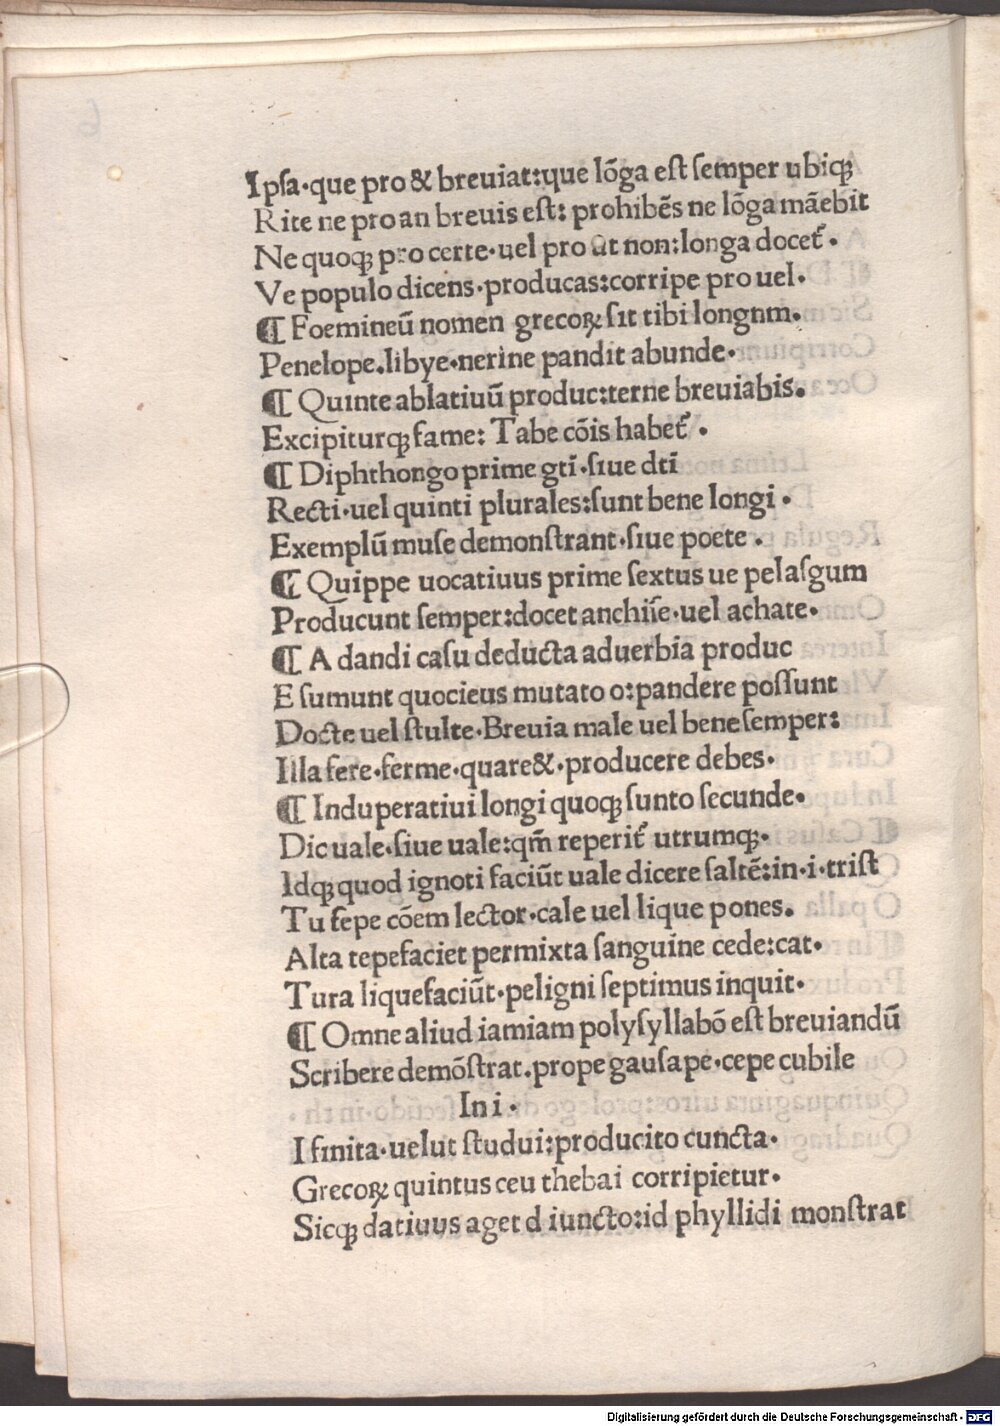 Ipſa·que pro & breuiat:que lōga eſt ſemper ubiqꝫ
Rite ne pro an breuis eſt: prohibēs ne lōga māebit
Ne quoqꝫ pro certe·uel pro ut non:longa docet᷑·
Ve populo dicens·producas:corripe pro uel·
¶ Foemineū nomen grecoꝝ ſit tibi longnm·
Penelope.libye·nerine pandit abunde·
¶ Quinte ablatiuū produc:terne breuiabis.
Excipiturqꝫ fame: Tabe cōis habet᷑ ·
¶ Diphthongo prime gt̄i·ſiue dt̄i
Recti·uel quinti plurales:ſunt bene longi ·
Exemplū muſe demonſtrant·ſiue poete ·
¶ Quippe uocatiuus prime ſextus ue pelaſgum
Producunt ſemper:docet anchiſe·uel achate·
¶ A dandi caſu deducta aduerbia produc
E ſumunt quocieus mutato o:pandere poſſunt
Docte uel ſtulte·Breuia male uel bene ſemper:
Illa fere·ferme·quare&·producere debes·
¶ Induperatiui longi quoqꝫ ſunto ſecunde·
Dic uale·ſiue uale:qm̄ reperit᷑ utrumqꝫ·
Idqꝫ quod ignoti faciūt uale dicere ſaltē:in·i·triſt
Tu ſepe cōem lector·cale uel lique pones.
Alta tepefaciet permixta ſanguine cede:cat·
Tura liquefaciūt·peligni ſeptimus inquit·
¶ Omne aliud iamiam polyſyllabō eſt breuiandū
Scribere demōſtrat.prope gauſape·cepe cubile
In i·
I finita·uelut ſtudui:producito cuncta·
Grecoꝝ quintus ceu thebai corripietur·
Sicqꝫ datiuus aget d iuncto:id phyllidi monſtrat
Digitalisierung gefördert durch die Deutsche Forschungsgemeinschaft · DFG